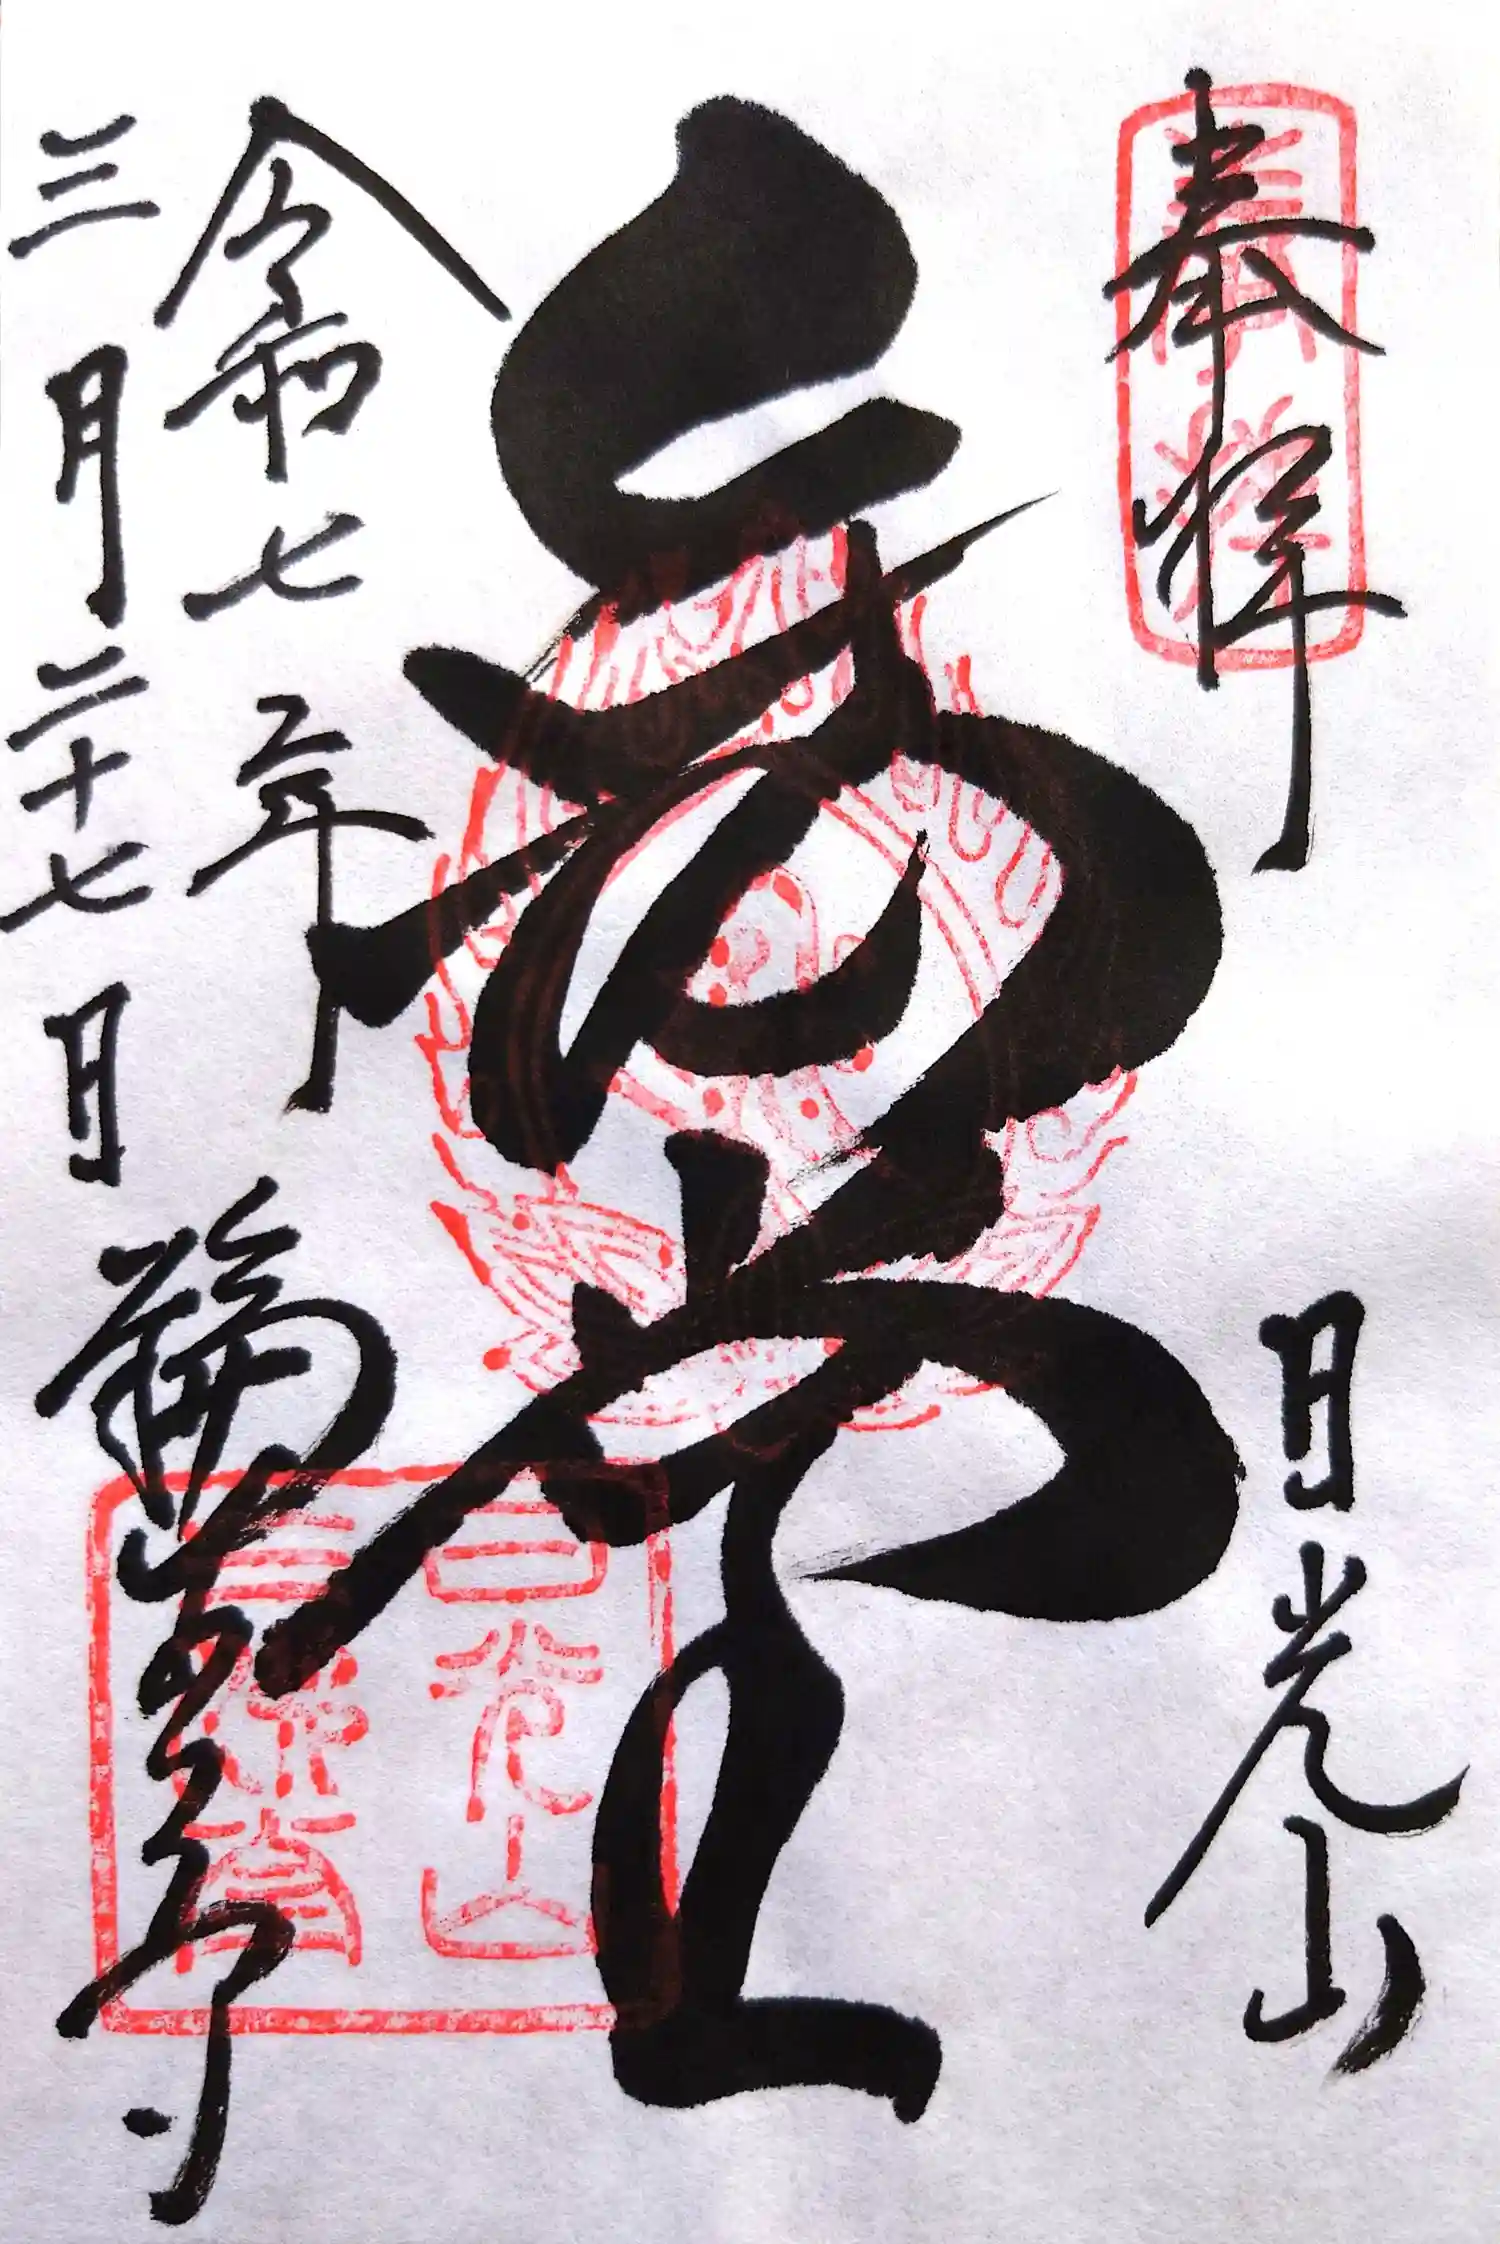 奉拝
日光山
令和七年
三月二十七日
輪王寺
奉拝
日光山
三佛堂